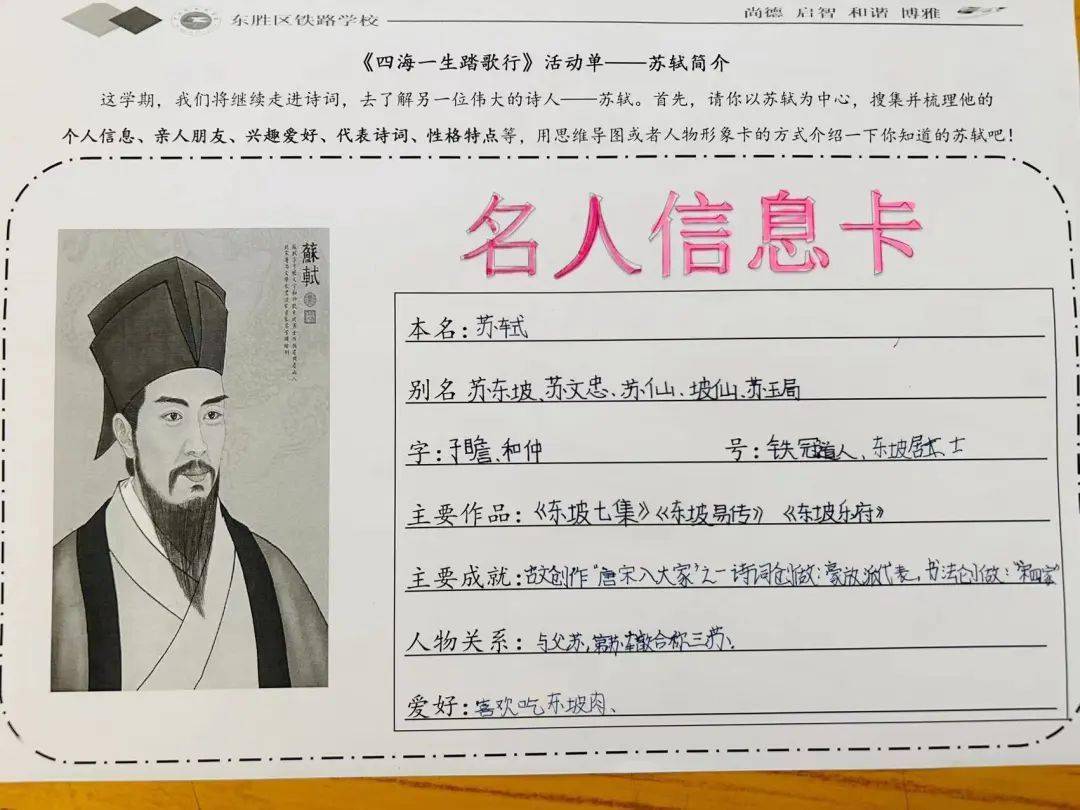 东胜区铁路学校
尚德 启智 和谐 博雅
《四海一生踏歌行》活动单——苏轼简介
这学期，我们将继续走进诗词，去了解另一位伟大的诗人——苏轼。首先，请你以苏轼为中心，搜集并梳理他的
个人信息、亲人朋友、兴趣爱好、代表诗词、性格特点等，用思维导图或者人物形象卡的方式介绍一下你知道的苏轼吧！
名人信息卡
蘇軾
本名：苏轼
别名 苏东坡、苏文忠、苏仙、坡仙、苏玉局
字：子瞻、和仲 号：铁冠道人、东坡居士
主要作品：《东坡七集》《东坡易传》 《东坡乐府》
主要成就：古文创作“唐宋八大家”之一 诗词创做：豪放派代表，书法创做：“宋四家”
人物关系：与父苏，合称三苏、
爱好：喜欢吃东坡肉、